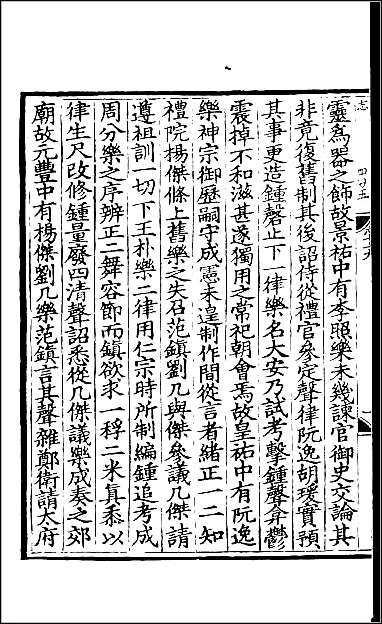 靈爲器之飾故景祐中有李照樂未幾諫官御史交論其
非竟復舊制其後詔侍從禮官參定聲律阮逸胡瑗實預
其事更造鍾磬止下一律樂名大安乃試考擊鍾聲弇鬱
震掉不和滋甚遂獨用之常祀朝會焉故皇祐中有阮逸
樂神宗御歷嗣守成憲未遑制作間從言者緒正一二知
禮院楊傑條上舊樂之失召范鎮劉几與傑參議几傑請
遵祖訓一切下王朴樂二律用仁宗時所制編鍾追考成
周分樂之序辨正二舞容節而鎮欲求一稃二米真黍以
律生尺改修鍾量廢四清聲詔悉從几傑議樂成奏之郊
廟故元豐中有楊傑劉几樂范鎮言其聲雜鄭衛請太府